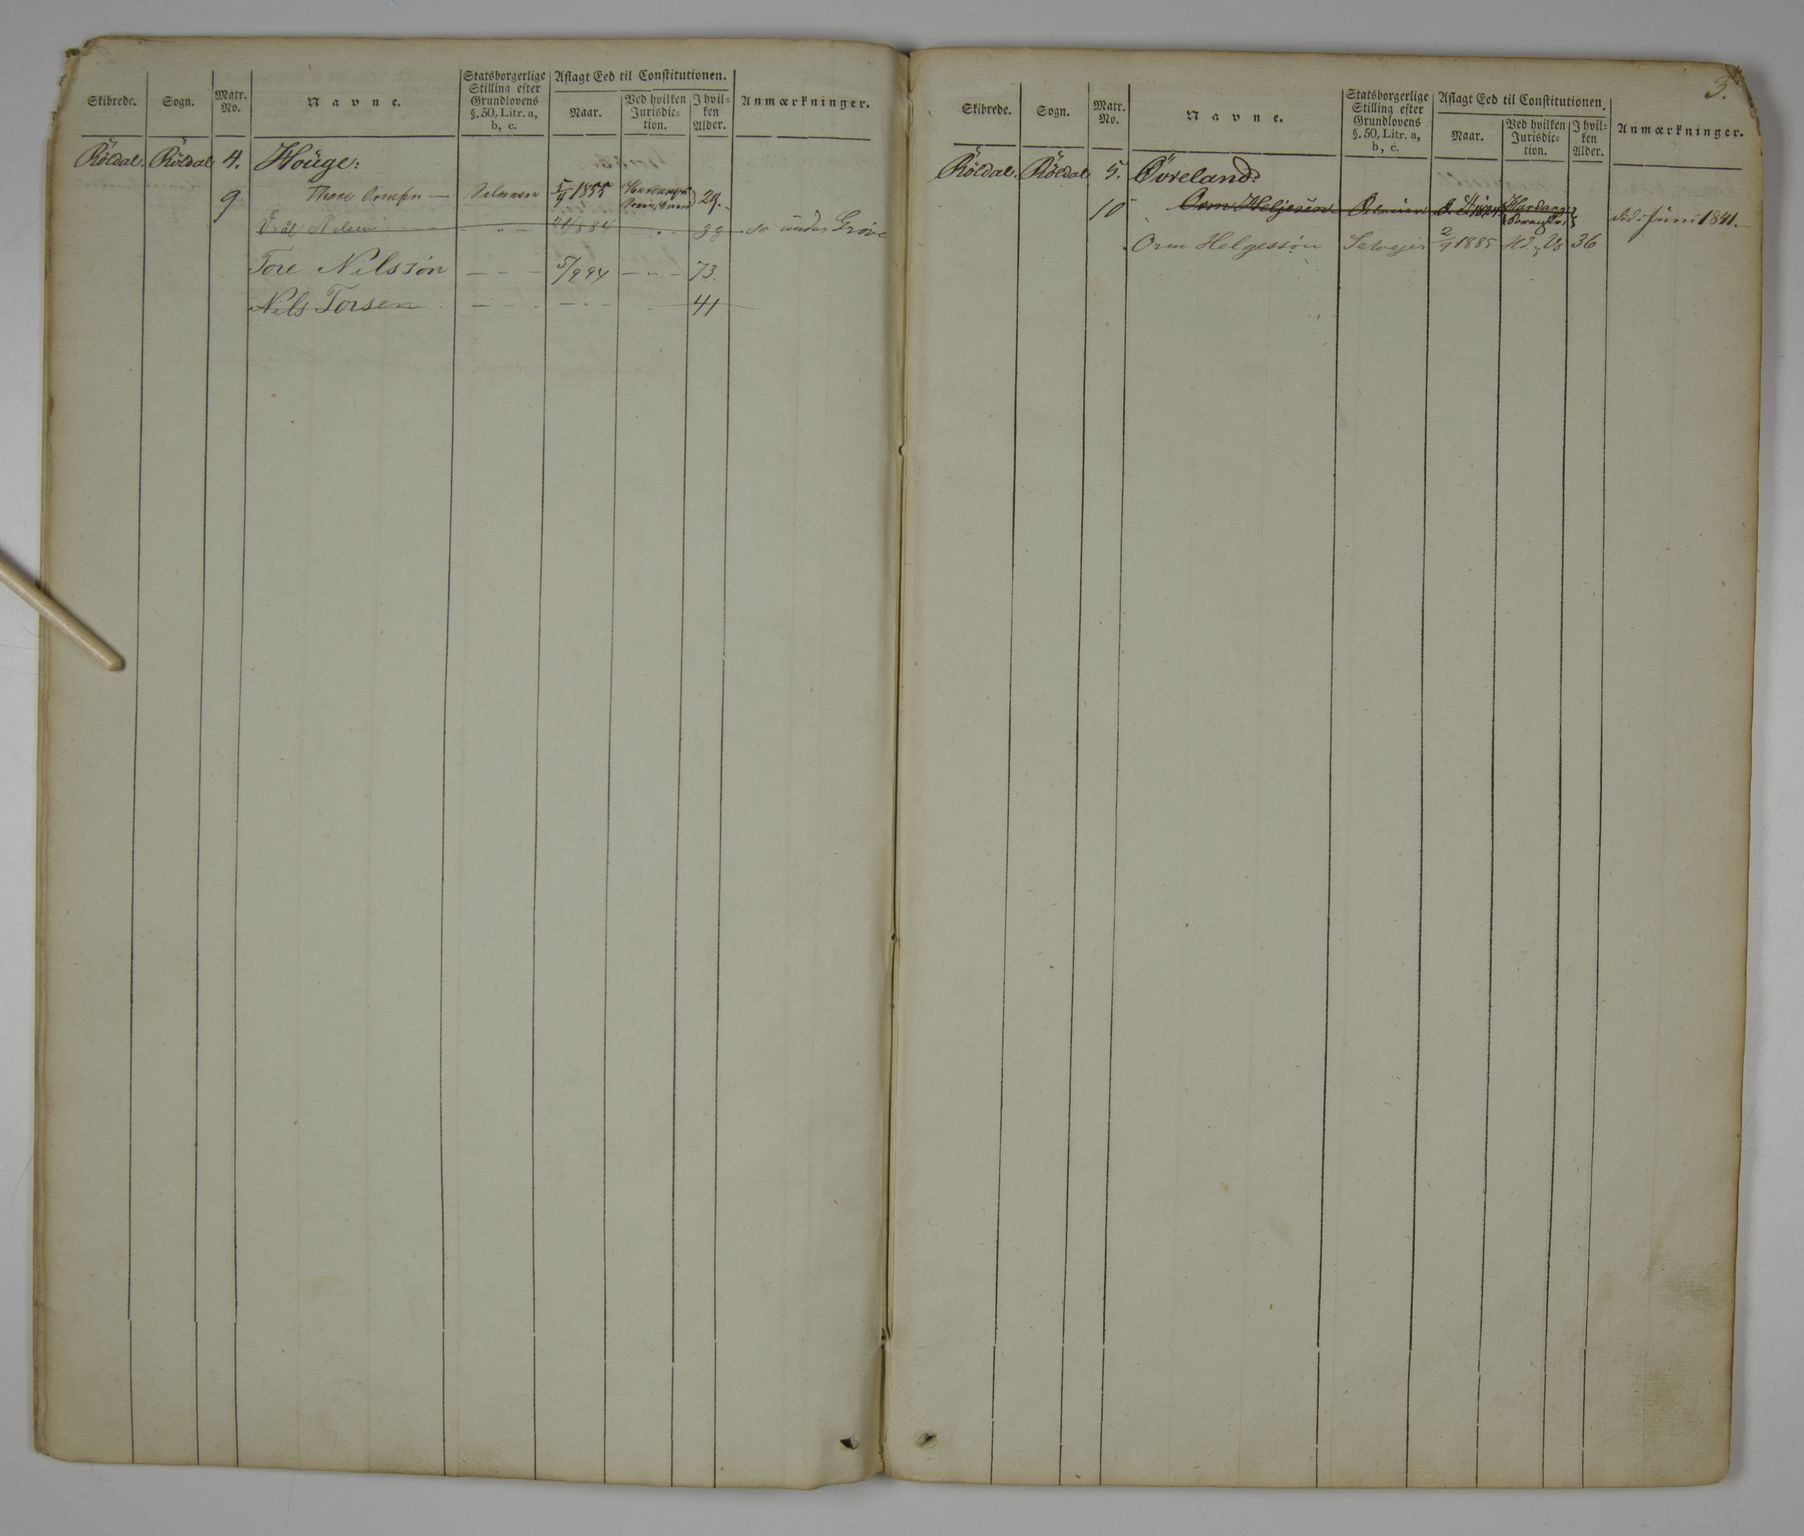 Skibrede. Sogn. Matr. No. Navne. Statsborgerlige Stilling efter Grundlovens §. 50, Litr. a, b, c. Aflagt Eed til Constitutionen. Naar. Ved hvilken Jurisdiction. I hvilken Alder. Anmærkninger.
Röldal. Röldal 4. Houge:
9 5/9 1855 29.
Nilsen 38 se under Gröve
Tore Nilssön — 5/9 94 — 73.
Nils Torsen — 41
3.
Skibrede. Sogn. Matr. No. Navne. Statsborgerlige Stilling efter Grundlovens §. 50, Litr. a, b, c. Aflagt Eed til Constitutionen. Naar. Ved hvilken Jurisdiction. I hvilken Alder. Anmærkninger.
Röldal. Röldal 5. Övreland:
10 Orm Heljesön Hardang död i Juni 1841.
Orm Helgessön Selvejer 2/9 1885 36